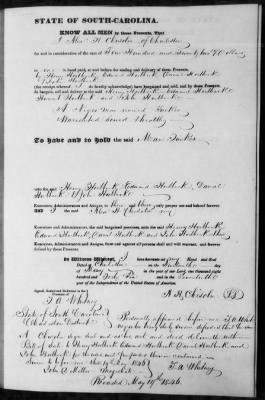 STATE OF SOUTH-CAROLINA.
KNOW ALL MEN by these Presents, That
I Alex H Chisolm of Charleston
for and in consideration of the sum of Four Hundred and Seventy five Dollars
to me in hand paid, at and before the sealing and delivery of these Presents,
by Henry Holbeck, Edward Holbeck, Daniel Holbeck
& John Holbeck
(the receipt whereof I do hereby acknowledge) have bargained and sold, and by these Presents,
do bargain, sell and deliver to the said Henry Holbeck, Edward Holbeck
Daniel Holbeck and John Holbeck
A Negro man named
Warranted sound & healthy
To have and to hold the said Man
unto the said Henry Holbeck, Edward Holbeck, Daniel
Holbeck & John Holbeck
Executors, Administrators and Assigns, to their and their only proper use and behoof forever
AND I the said Alex H Chisolm my
Executors and Administrators, the said bargained premises, unto the said Henry Holbeck,
Edward Holbeck, Daniel Holbeck and John Holbeck their
Executors, Administrators and Assigns, from and against all persons shall and will warrant, and forever
defend by these Presents.
In Witness Whereof, I have hereunto set my Hand and Seal
Dated at Charleston on the day
of May in the year of our Lord, one thousand eight
hundred and forty Six and in the Seventieth
year of the Independence of the United States of America.
Signed, Sealed and Delivered in the
Presence of
F. A. Whitney
A. H. Chisolm
State of South Carolina
Charleston District
Personally appeared before me F. A. Whitney
who being duly sworn deposed that he saw
A Chisolm sign seal and as his act and deed deliver the within
Bill of Sale to Henry Holbeck Edward Holbeck Daniel Holbeck and
John Holbeck for the uses and purposes therein contained
Sworn to before me this 1846
John S Miller Magistrate
F. A. Whitney
Recorded May 19th 1846.